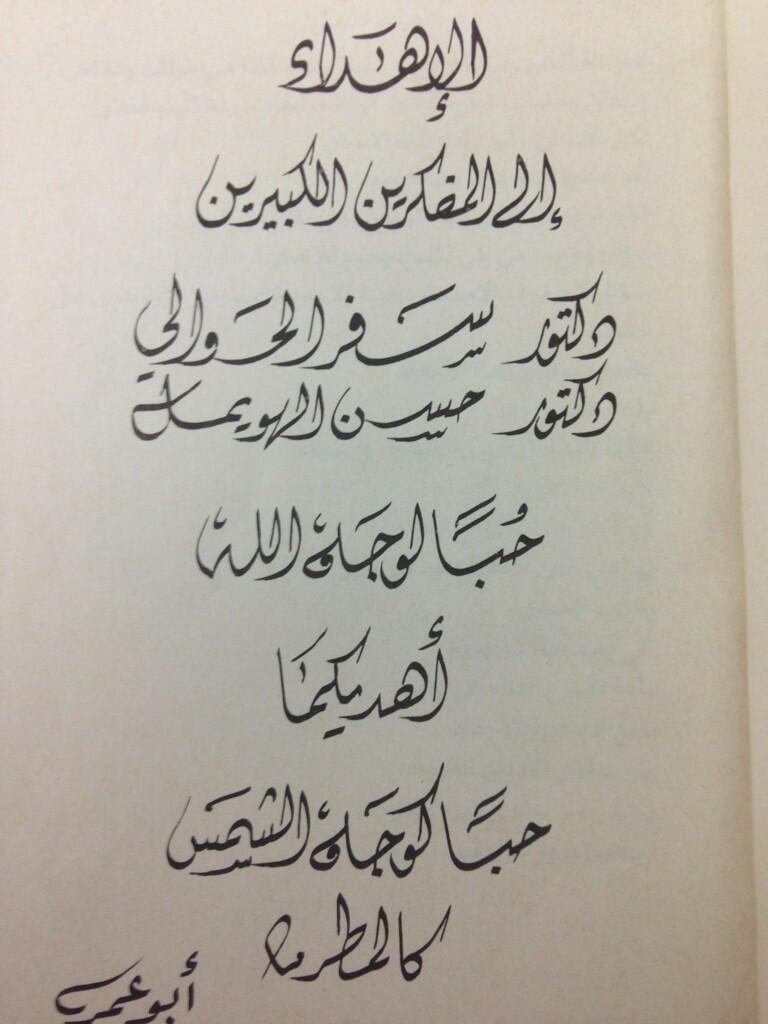 الإهداء
إلى المفكرين الكبيرين
دكتور سفر الحوالي
دكتور حسن الهويمل
حُبًّا لوجه الله
أهديكما
حبًّا كوجه الشمس
كالمطر
أبو عمر